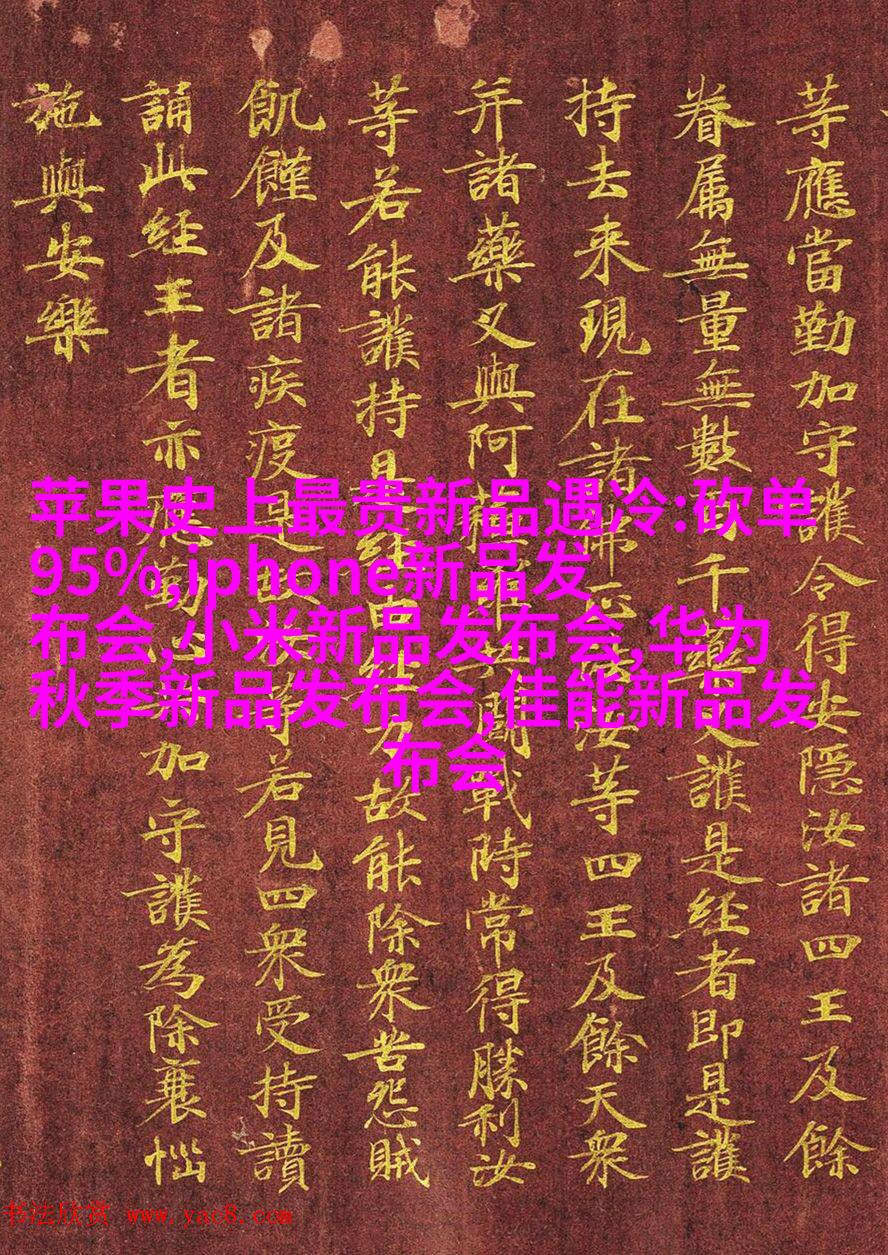 等應當勤加守護令得安隱汝諸四王及餘
眷属無量無數百千藥叉護是經者即是護
持去来現在諸佛正法汝等四王及餘天衆
并諸藥叉與阿蘇羅共鬪戰時常得勝利汝
等若能護持是經由經力故能除衆苦怨賊
飢饉及諸疾疫是故汝等若見四衆受持讀
誦此經王者亦應勤加守護為除襄惱
施與安樂
苹果史上最贵新品遇冷:砍单
95%,iphone新品发
布会,小米新品发布会,华为
秋季新品发布会,佳能新品发
布会
书法欣赏 www.yac8.com